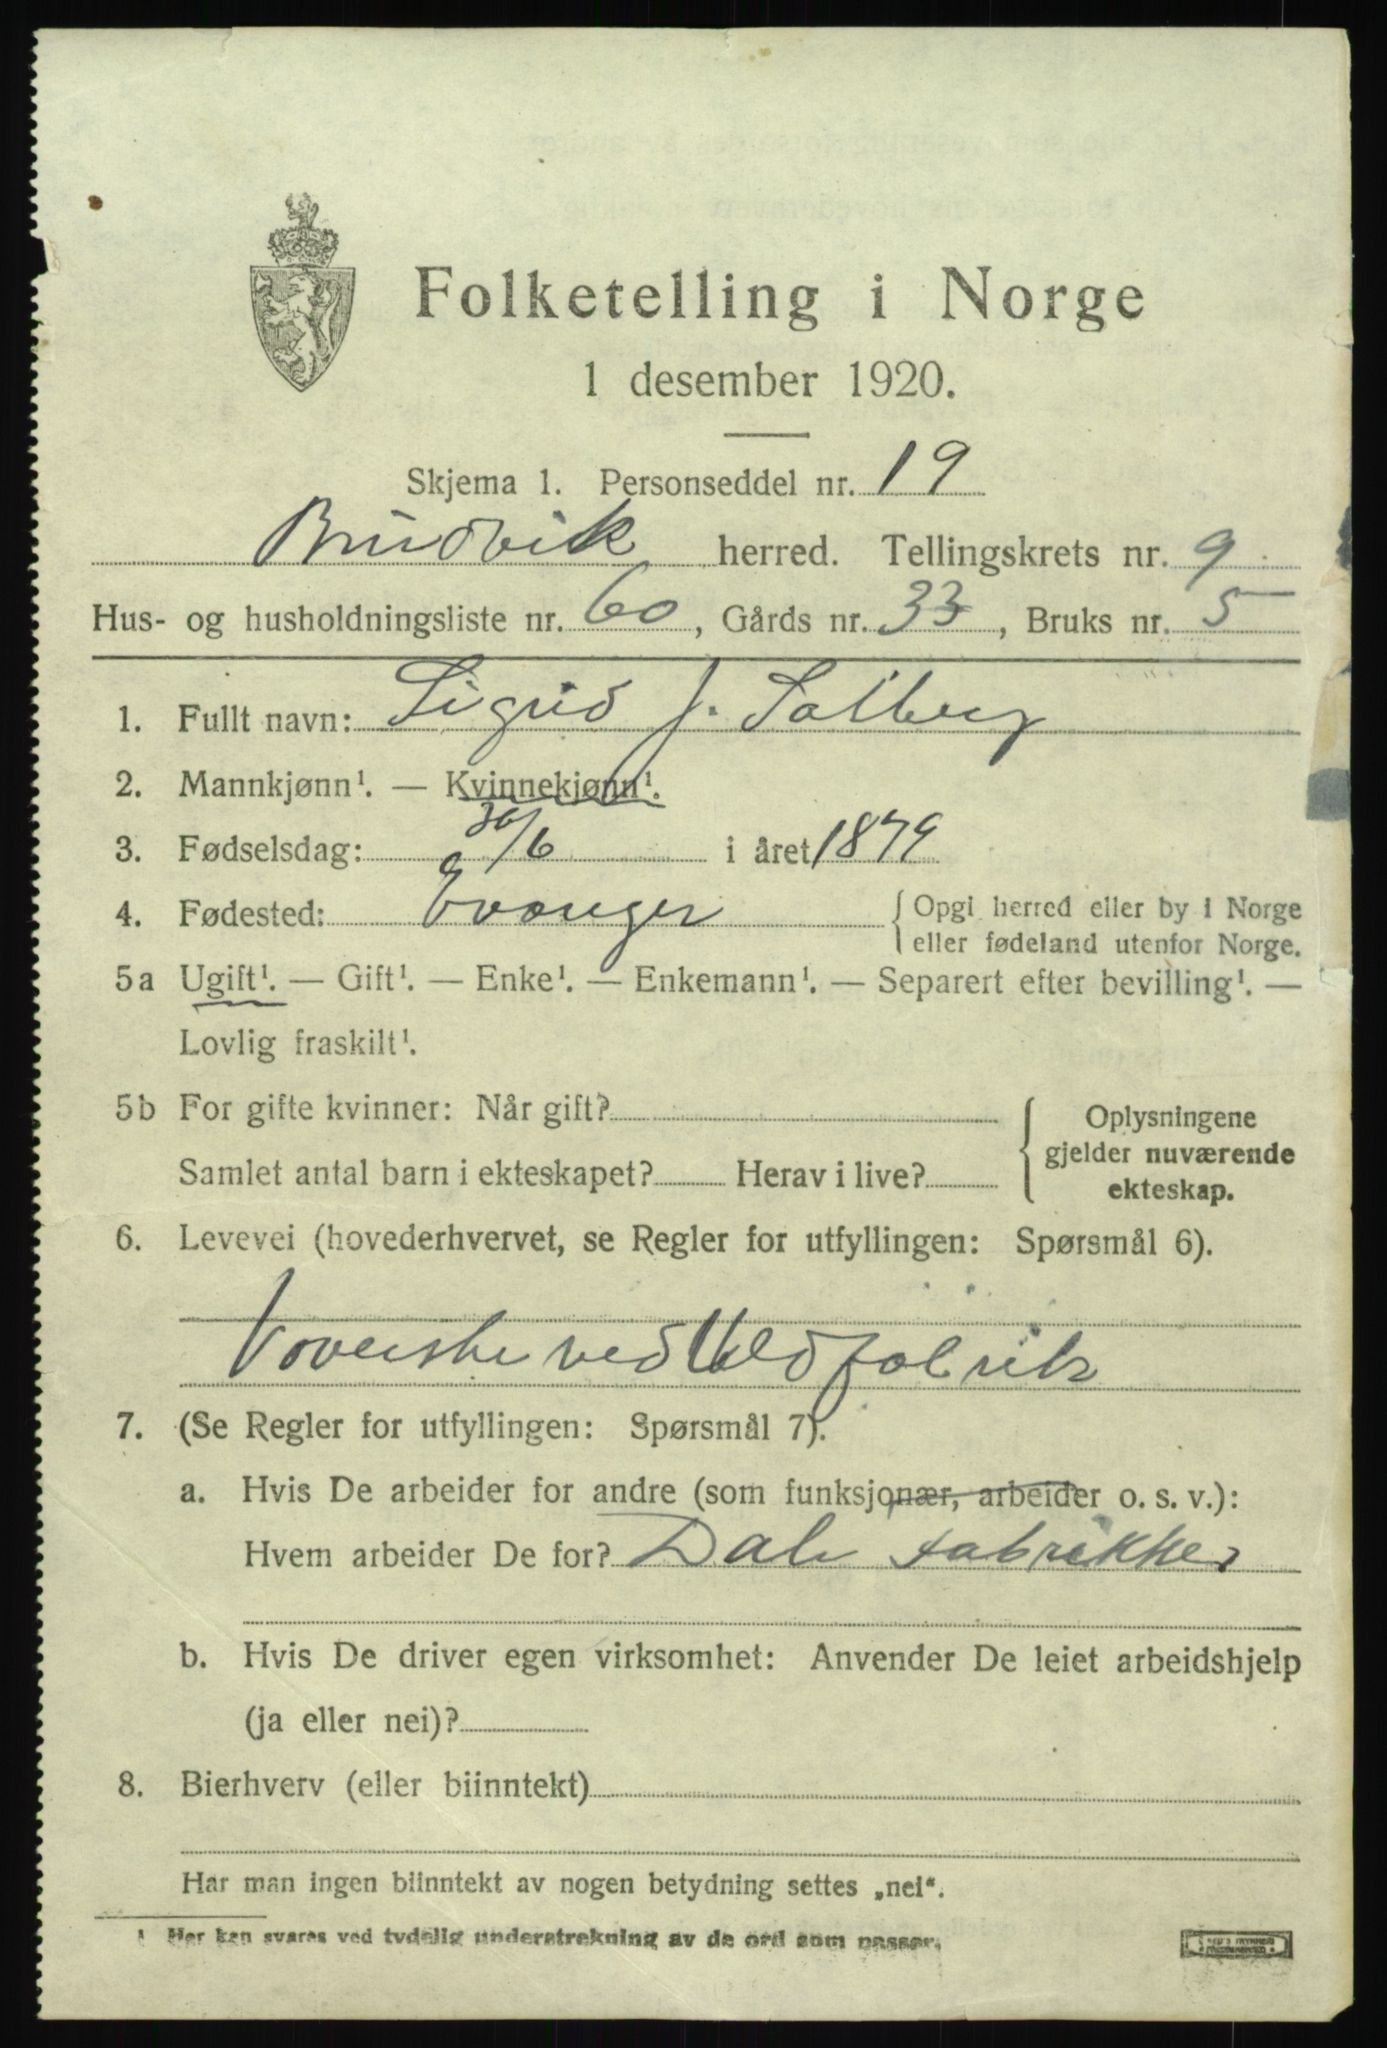 Folketelling i Norge
1 desember 1920.
Skjema 1. Personseddel nr. 19
Brudvik herred. Tellingskrets nr. 9
Hus- og husholdningsliste nr. 60, Gårds nr. 33, Bruks nr. 5
1. Fullt navn: Sigrid J. Solberg
2. Mannkjønn¹. — Kvinnekjønn¹.
3. Fødselsdag: 30/6 i året 1879
4. Fødested: Evanger { Opgi herred eller by i Norge
eller fødeland utenfor Norge.
5a Ugift¹. — Gift¹. — Enke¹. — Enkemann¹. — Separert efter bevilling¹. —
Lovlig fraskilt¹.
5b For gifte kvinner: Når gift?
Samlet antal barn i ekteskapet? Herav i live?
{ Oplysningene
gjelder nuværende
ekteskap.
6. Levevei (hovederhvervet, se Regler for utfyllingen: Spørsmål 6).
Væverske ved Uldfabrik
7. (Se Regler for utfyllingen: Spørsmål 7).
a. Hvis De arbeider for andre (som funksjonær, arbeider o. s. v.):
Hvem arbeider De for? Dale Fabrikker
b. Hvis De driver egen virksomhet: Anvender De leiet arbeidshjelp
(ja eller nei)?
8. Bierhverv (eller biinntekt)
Har man ingen biinntekt av nogen betydning settes „nei“.
¹ Her kan svares ved tydelig understrekning av de ord som passer.